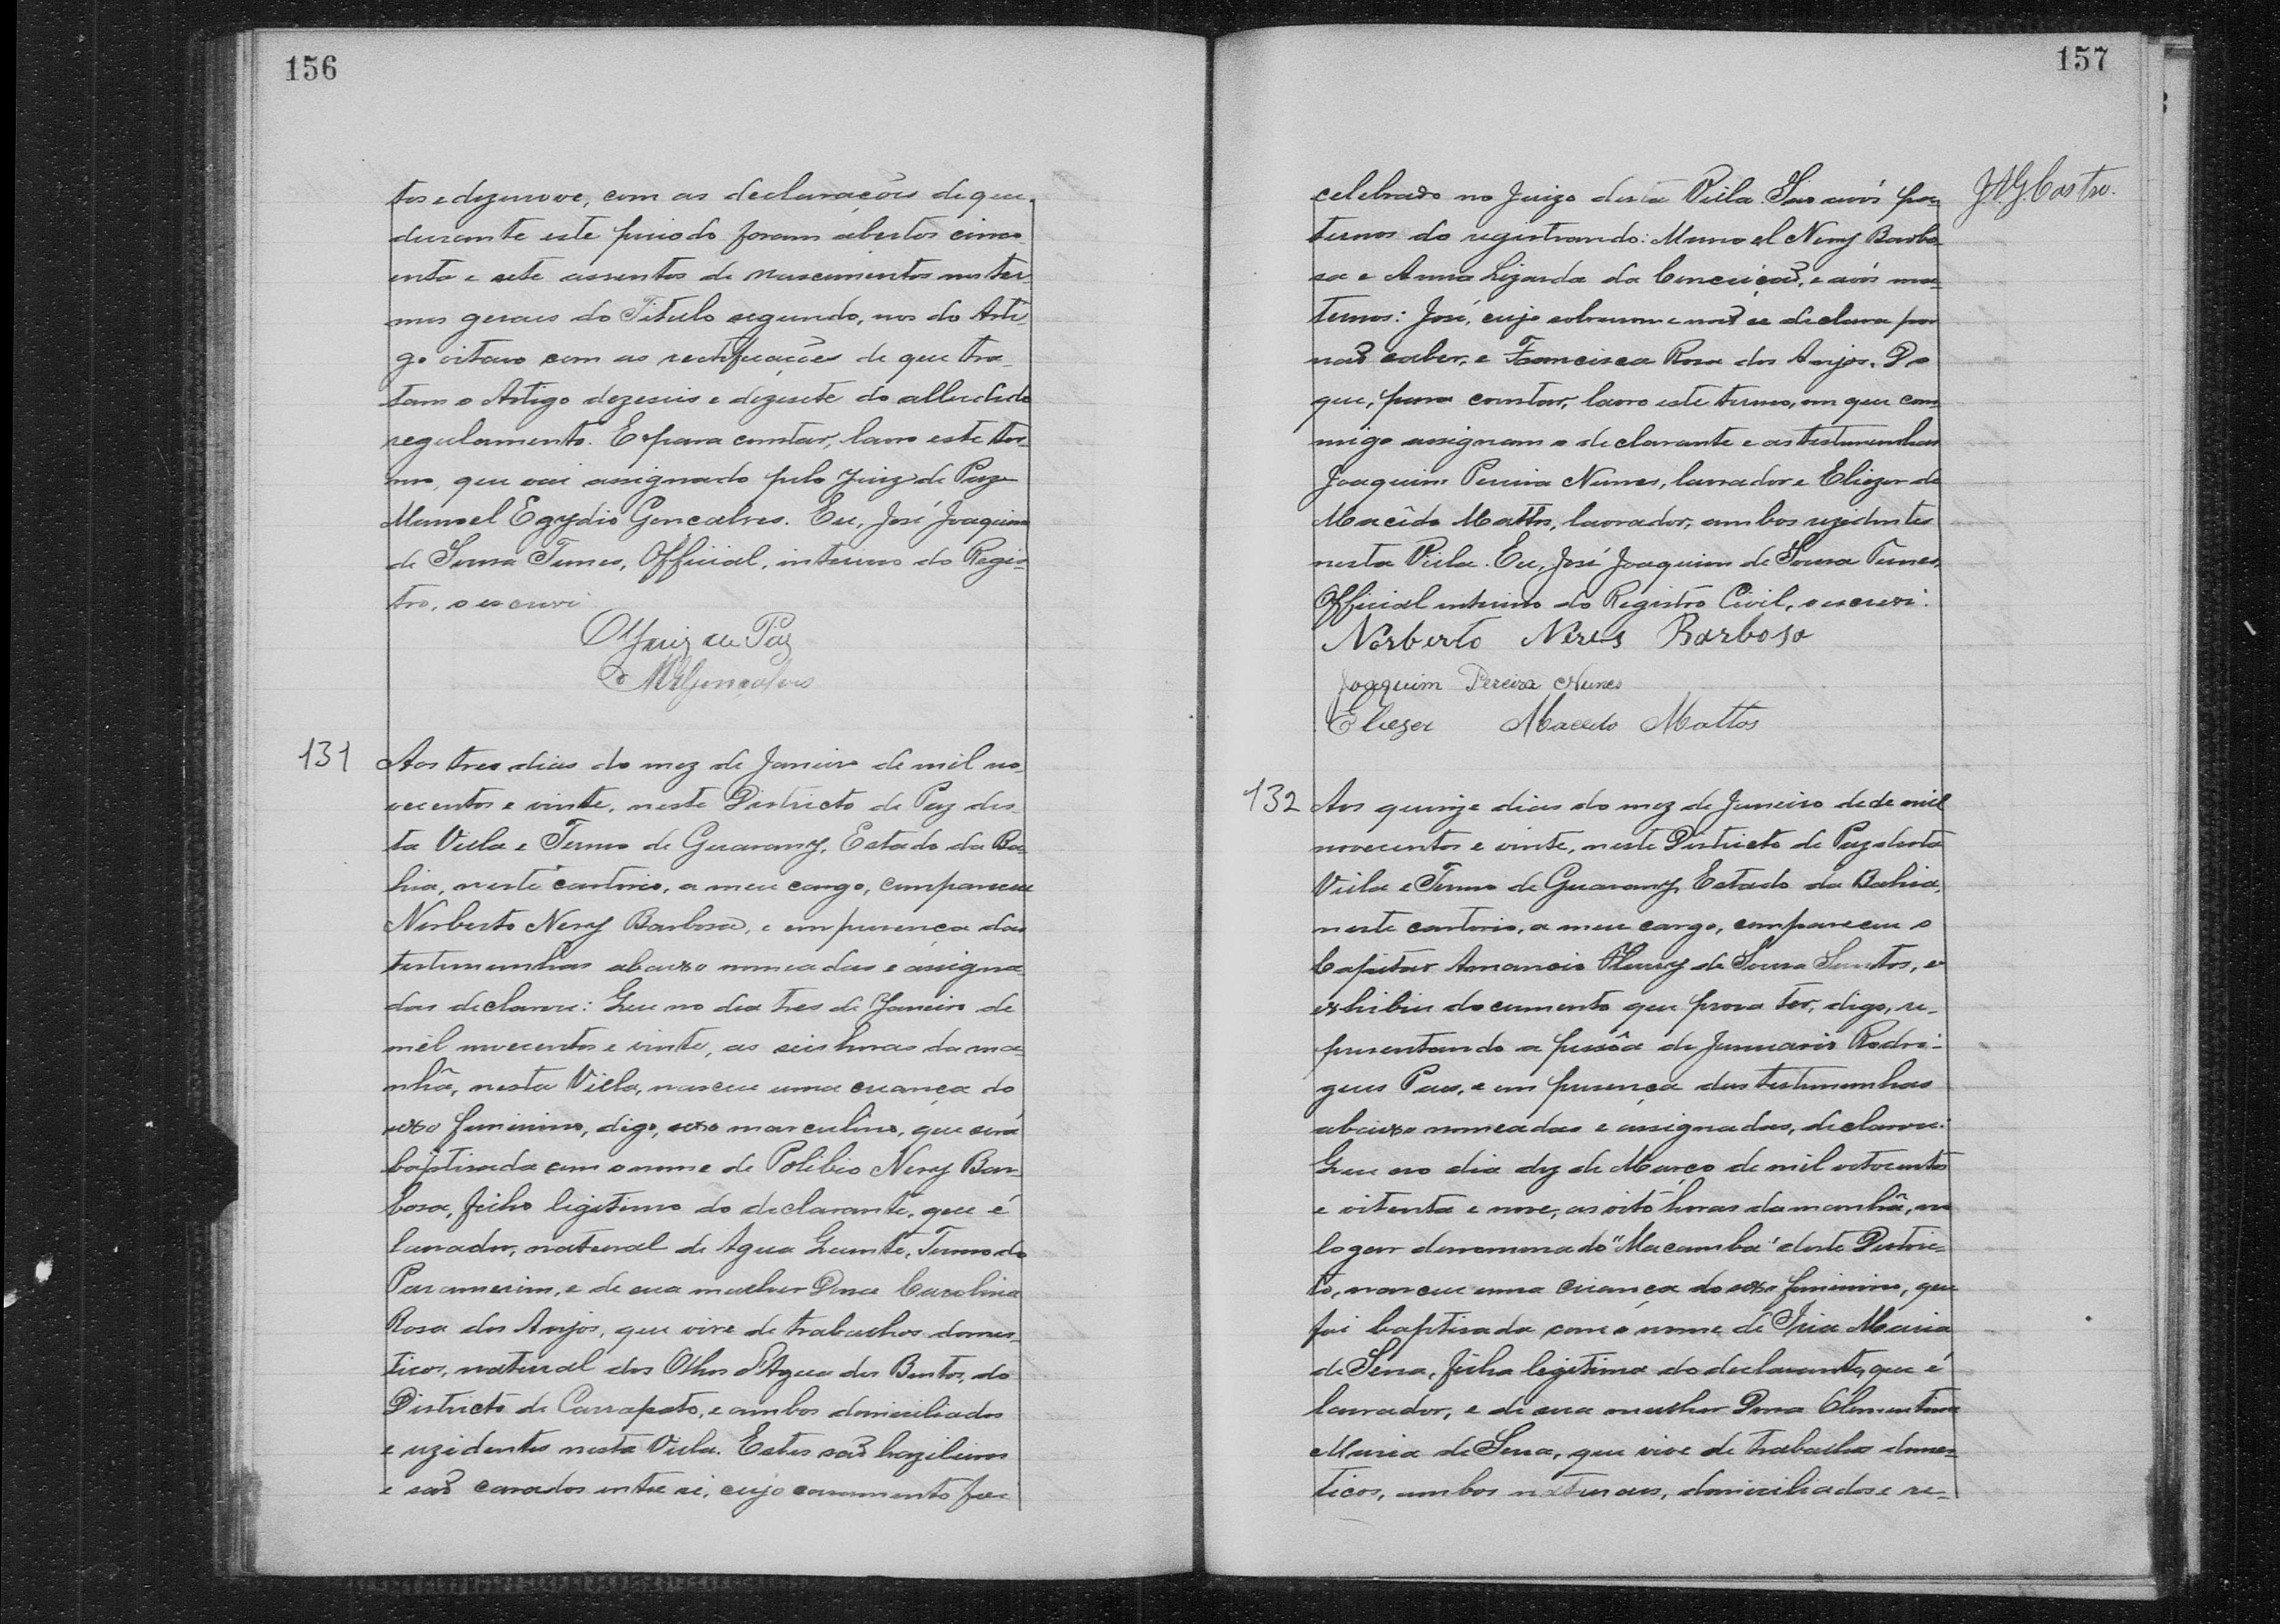 156
tos e dezenove, com as declarações de que,
durante este periodo foram abertos cinco-
enta e sete assentos de nascimentos nos ter-
mos geraes do Titulo segundo, nos do Arti-
go oitavo com as rectificações de que tra-
tam o Artigo dezeseis e dezesete do alludido
regulamento. E para constar, lavro este ter-
mo, que vai assignado pelo Juiz de Paz
Manoel Egydio Gonçalves. Eu, José Joaquim
de Sousa Tunes, Official, interino do Regis-
tro, o escrevi
O Juiz de Paz
MEGonçalves
131 Aos tres dias do mez de Janeiro de mil no-
vecentos e vinte, neste Districto de Paz des-
ta Villa e Termo de Guarany, Estado da Ba-
hia, neste cartorio, a meu cargo, compareceu
Norberto Nery Barbosa, e em presença das
testemunhas abaixo nomeadas e assigna-
das declarou: Que no dia tres de Janeiro de
mil novecentos e vinte, as seis horas da ma-
nhã, nesta Villa, nasceu uma creança do
sexo feminino, digo, sexo masculino, que será
baptisada com o nome de Polibio Nery Bar-
bosa, filho legitimo do declarante, que é
lavrador, natural de Agua Quente, Termo do
Paramerim, e de sua mulher Dona Carolina
Rosa dos Anjos, que vive de trabalhos domes-
ticos, natural dos Olhos d'Agua dos Bentos, do
Districto de Carrapato, e ambos domiciliados
e rezidentes nesta Villa. Estes são brazileiros
e são casados entre si, cujo casamento foi
157
celebrado no Juizo desta Villa. São avós pa-
ternos do registrando: Manoel Nery Barbo-
sa e Anna Lizarda da Conceição, e avós ma-
ternos: José, cujo sobrenome não se declara por
não saber, e Francisca Rosa dos Anjos. Do
que, para constar, lavro este termo, em que com-
migo assignam o declarante e as testemunhas
Joaquim Pereira Nunes, lavrador e Eliezer de
Macêdo Mattos, lavrador, ambos rezidentes
nesta Villa. Eu, José Joaquim de Sousa Tunes,
Official interino do Registro Civil, o escrevi.
Norberto Neres Barbosa
Joaquim Pereira Nunes
Eliezer Macedo Mattos
J.A.G. Castro.
132 Aos quinze dias do mez de Janeiro de de mil
novecentos e vinte, neste Districto de Paz desta
Villa e Termo de Guarany, Estado da Bahia,
neste cartorio, a meu cargo, compareceu o
Capitão Amancio Fleury de Sousa Santos, e
exhibiu documento que prova ter, digo, re-
presentando a pessôa de Januario Rodri-
gues Paes, e em presença das testemunhas
abaixo nomeadas e assignadas, declarou:
Que no dia dez de Março de mil oitocentos
e oitenta e nove, as oito horas da manhã, no
logar denominado "Macamba" deste Distric-
to, nasceu uma creança do sexo feminino, que
foi baptisada com o nome de Iria Maria
de Sena, filha legitima do declarante, que é
lavrador, e de sua mulher Dona Clementina
Maria de Sena, que vive de trabalhos domes-
ticos, ambos naturaes, domiciliados e re-